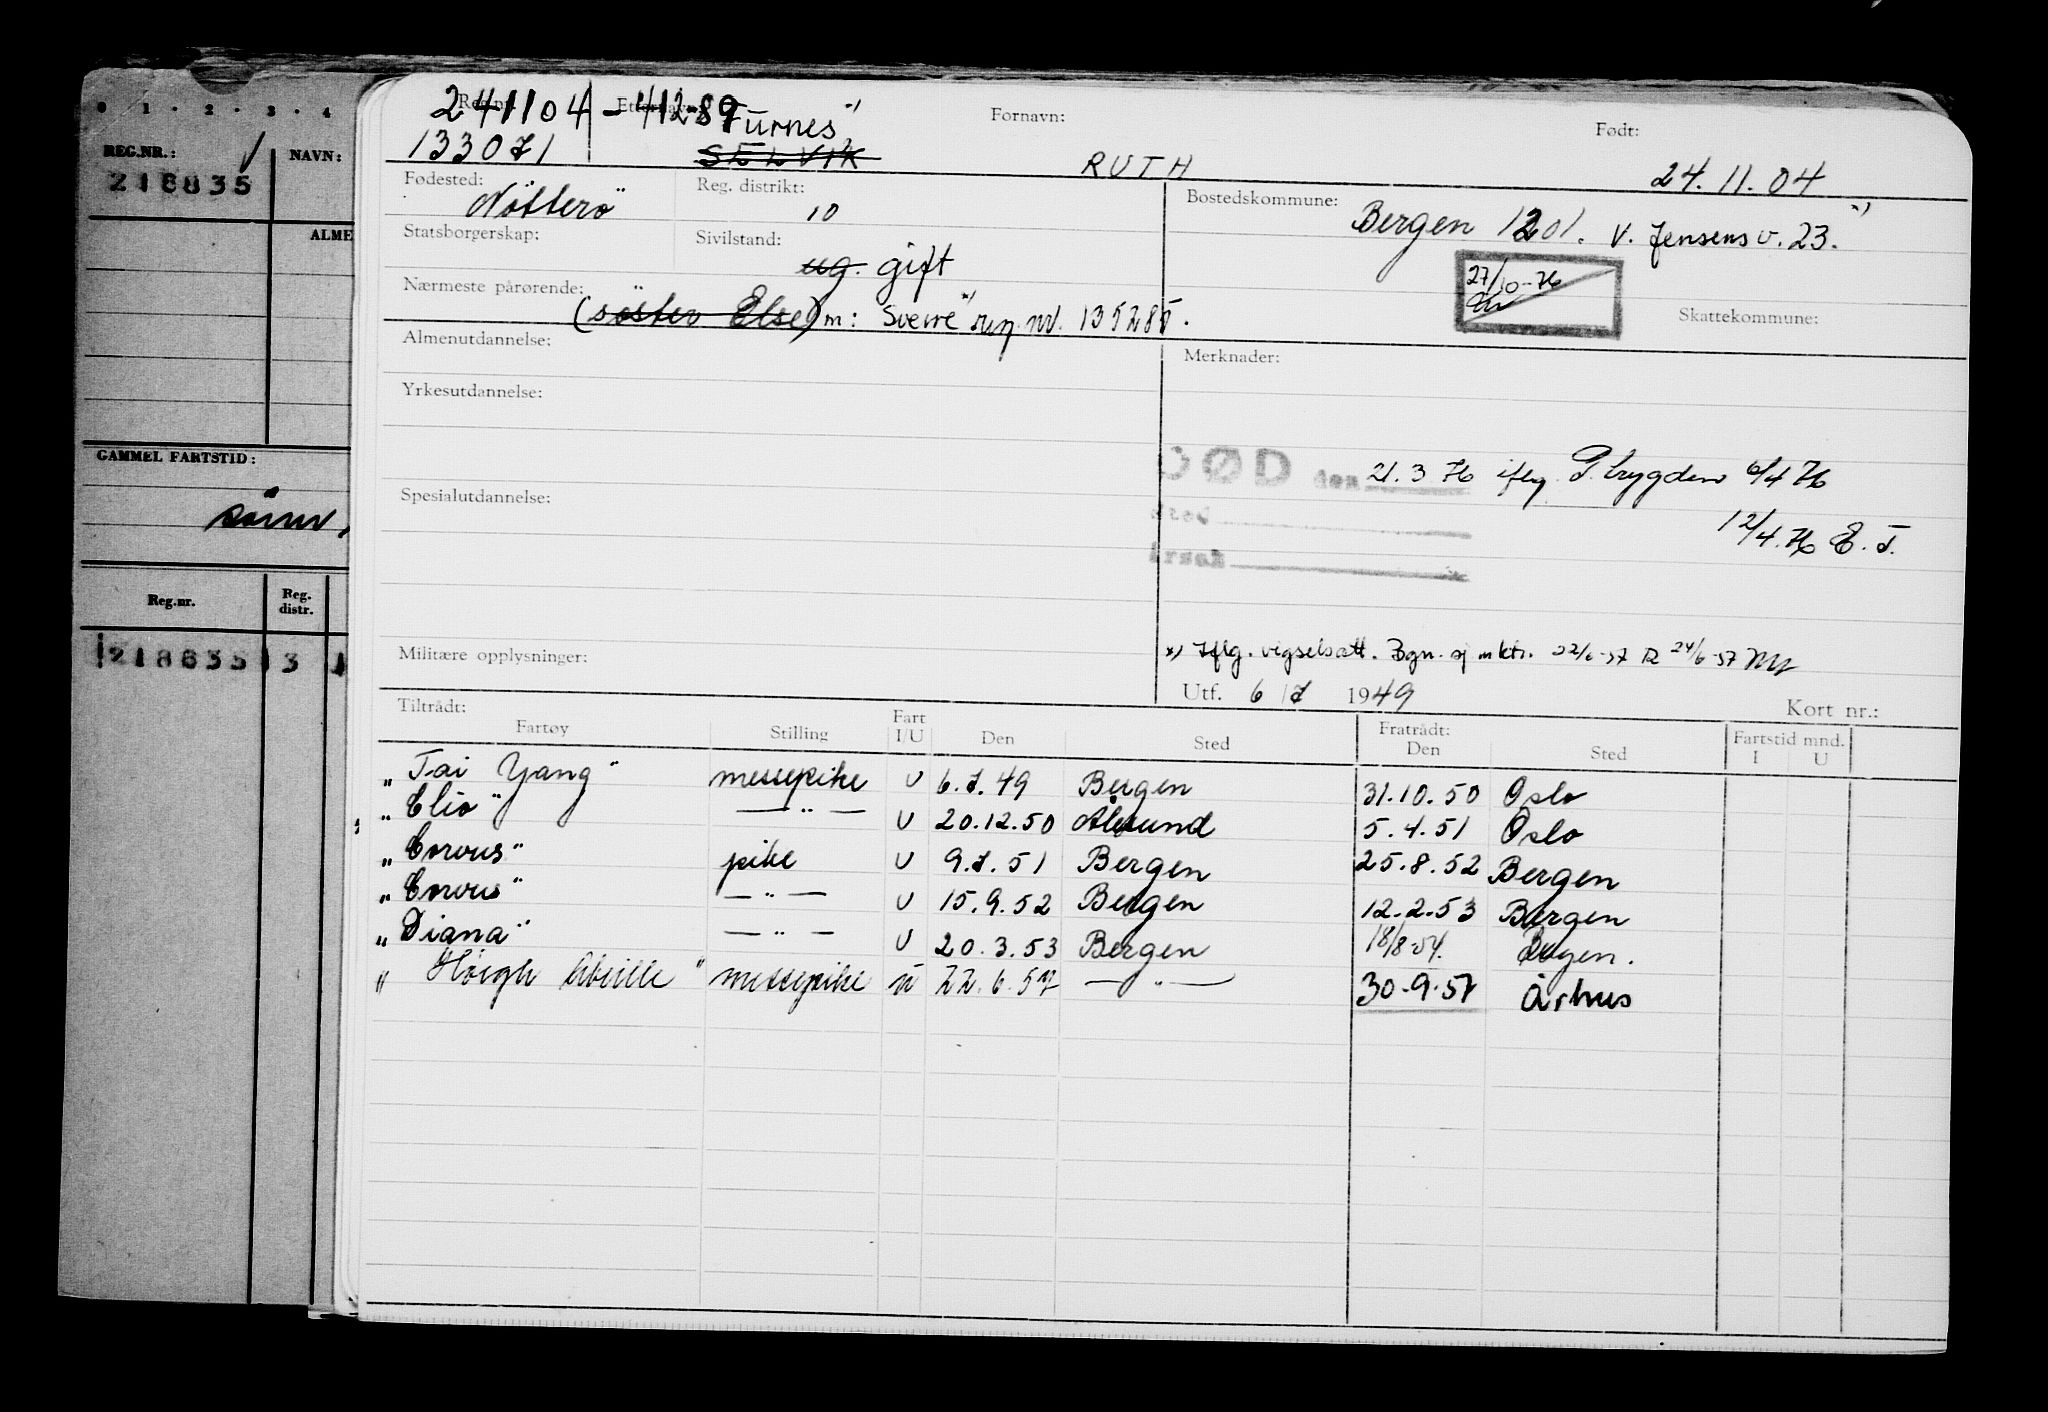 0 1 . 2 . 3 . 4
REG.NR.: NAVN:
218835
ALME
GAMMEL FARTSTID:
Reg.nr. Reg. distr.
218635 3
Reg.nr. Etternavn: Fornavn: Født:
241104 - 41289 Furnes x)
133071 SELVIK RUTH 24.11.04
Fødested: Nötterö Reg. distrikt: 10 Bostedskommune: Bergen 1201. v. Jensens v. 23. x)
Statsborgerskap: Sivilstand: ug. gift
27/10-76
Nærmeste pårørende: (søster Else) m: Sverre x) reg. nr. 135285. Skattekommune:
Almenutdannelse: Merknader:
Yrkesutdannelse:
DØD den 21.3 76 iflg. P. trygden 6/4 76
Spesialutdannelse: Sted 12/4.76 E. T.
Årsak
Militære opplysninger: x) Iflg. vigselsatt. Bgn. sj mktr. 22/6-57 R 24/6-57
Utf. 6 / 7 1949 Kort nr.:
Tiltrådt: Fart Fratrådt: Fartstid mnd.
Fartøy Stilling I/U Den Sted Den Sted I U
"Tai Yang" messepike U 6.7.49 Bergen 31.10.50 Oslo
"Clio" — " — U 20.12.50 Ålesund 5.4.51 Oslo
"Corvus" pike U 9.7.51 Bergen 25.8.52 Bergen
"Corvus" — " — U 15.9.52 Bergen 12.2.53 Bergen
"Diana" — " — U 20.3.53 Bergen 18/8-54. Bergen.
" Höegh Abeille " messepike u 22.6.57 — " — 30-9-57 Århus